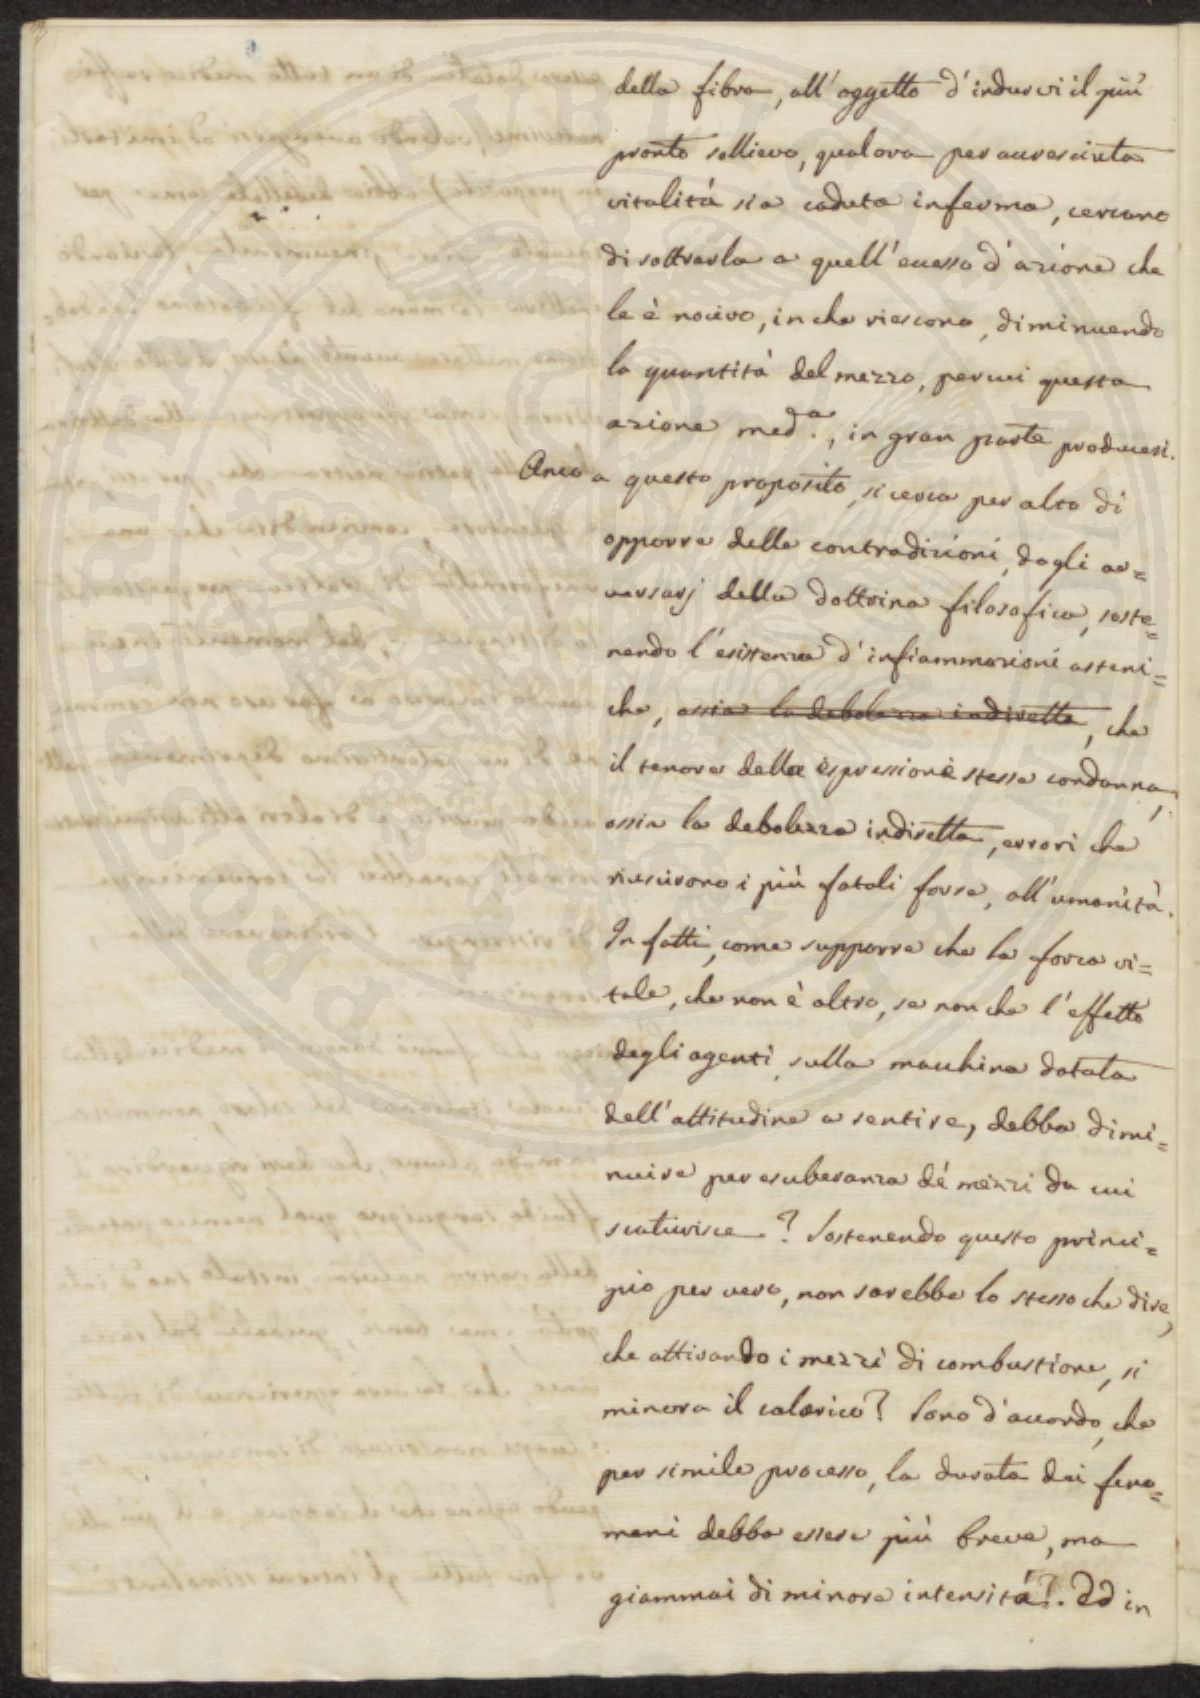 della fibra, all'oggetto d'indurvi il più
pronto sollievo, qualora per accresciuta
vitalità sia caduta inferma, cercano
di sottrarla a quell'eccesso d'azione che
le è nocivo, in che riescono, diminuendo
la quantità del mezzo, per cui questa
azione med.a, in gran parte producesi.
Anco a questo proposito, si cerca per alto di
opporre delle contradizioni, dagli av=
versarj della dottrina filosofica, soste=
nendo l'esistenza d'infiammazioni asteni=
che, ossia la debolezza indiretta, che
il tenore delle espressioni stesse condanna,
ossia la debolezza indiretta, errori che
riuscirono i più fatali forse, all'umanità.
In fatti, come supporre che la forza vi=
tale, che non è altro, se non che l'effetto
degli agenti, sulla macchina dotata
dell'attitudine a sentire, debba dimi=
nuire per esuberanza dé mezzi da cui
scaturisce? Sostenendo questo princi=
pio per vero, non sarebbe lo stesso che dire,
che attivando i mezzi di combustione, si
minora il calorico? Sono d'accordo, che
per simile processo, la durata dei feno=
meni debba essere più breve, ma
giammai di minore intensità?. Ed in